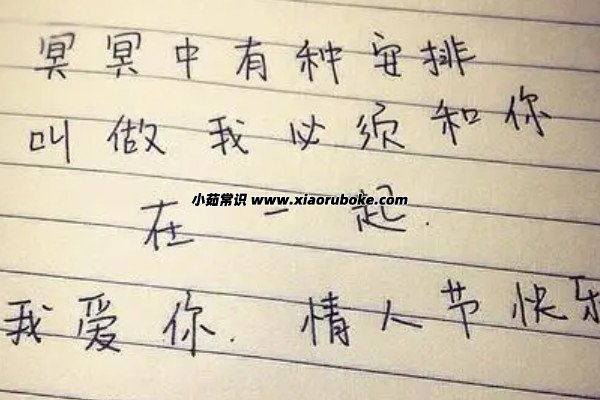 冥冥中有种安排
叫做我必须和你
小茹常识 www.xiaoruboke.com
在一起.
我爱你. 情人节快乐